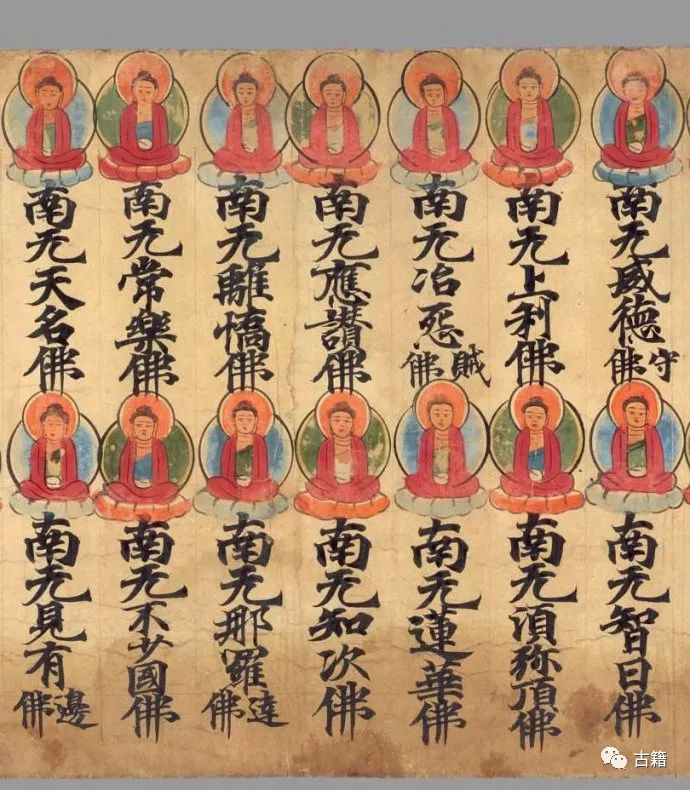 南无威德守佛
南无智日佛
南无上利佛
南无湏弥頂佛
南无冶怨賊佛
南无蓮華佛
南无應讃佛
南无知次佛
南无離憍佛
南无那羅達佛
南无常樂佛
南无不少國佛
南无天名佛
南无見有邊佛
古籍